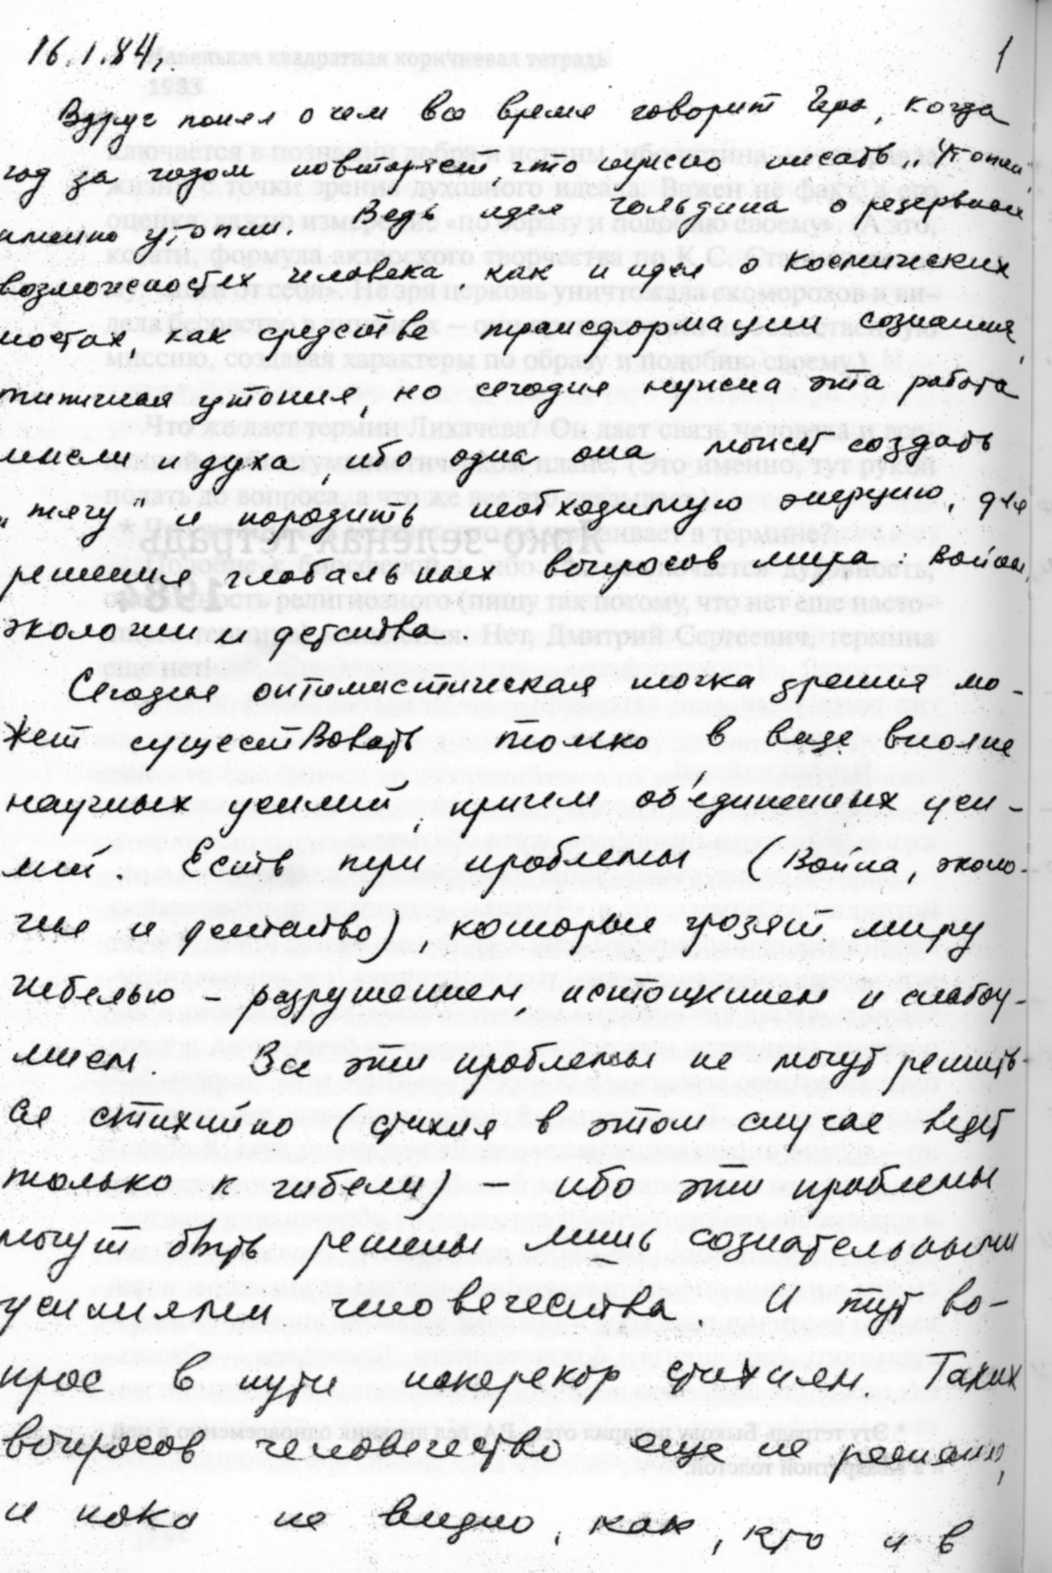 16.1.84.
1
Вдруг понял о чем все время говорит Гера, когда
год за годом повторяет, что нужно писать „Утопии",
именно утопии. Ведь идея Гольдина о резервных
возможностях человека, как и идея о космических
постах, как средстве трансформации сознания,
типичная утопия, но сегодня нужна эта работа
мысли и духа, ибо одна она может создать
„тягу" и породить необходимую энергию, для
решения глобальных вопросов мира: войны,
экологии и детства.
Сегодня оптимистическая точка зрения мо-
жет существовать только в виде вполне
научных усилий, причем объединенных уси-
лий. Есть три проблемы (война, эколо-
гия и детство), которые грозят миру
гибелью – разрушением, истощением и слабоу-
мием. Все эти проблемы не могут решить-
ся стихийно (стихия в этом случае ведет
только к гибели) – ибо эти проблемы
могут быть решены лишь сознательными
усилиями человечества. И тут во-
прос в пути наперекор стихиям. Таких
вопросов человечество еще не решало,
и пока не видно, как, кто и в